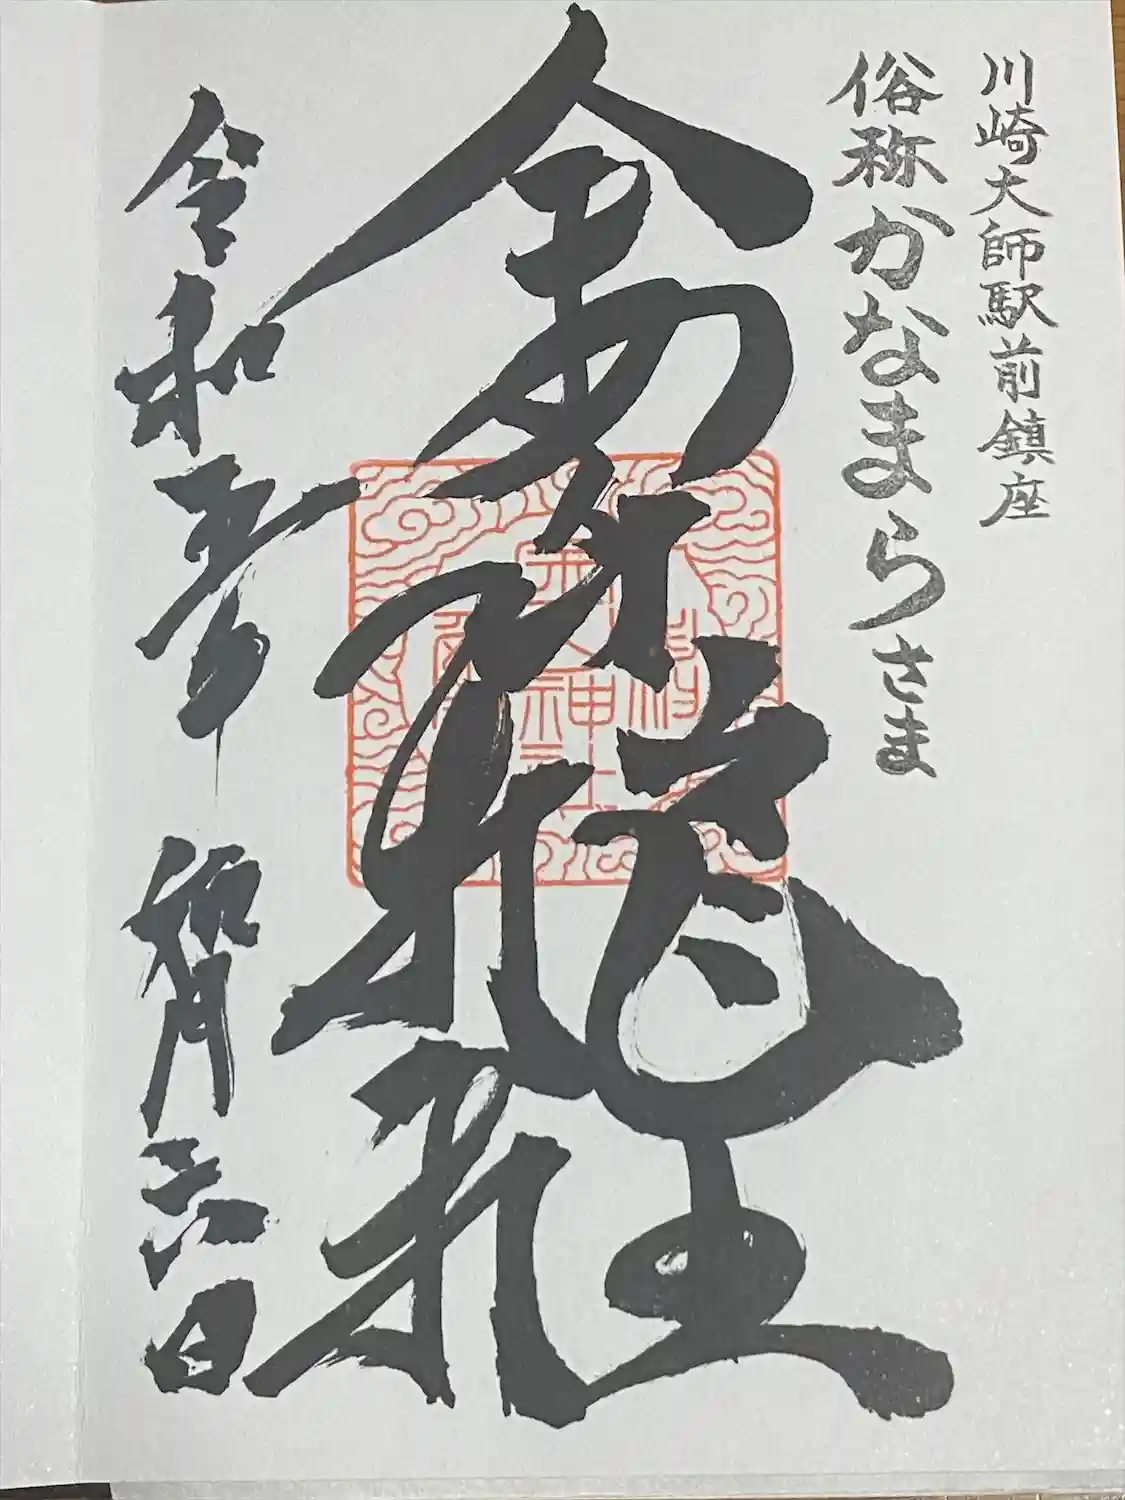 川崎大師駅前鎮座
俗称かなまらさま
金山神社
令和五年
月六日